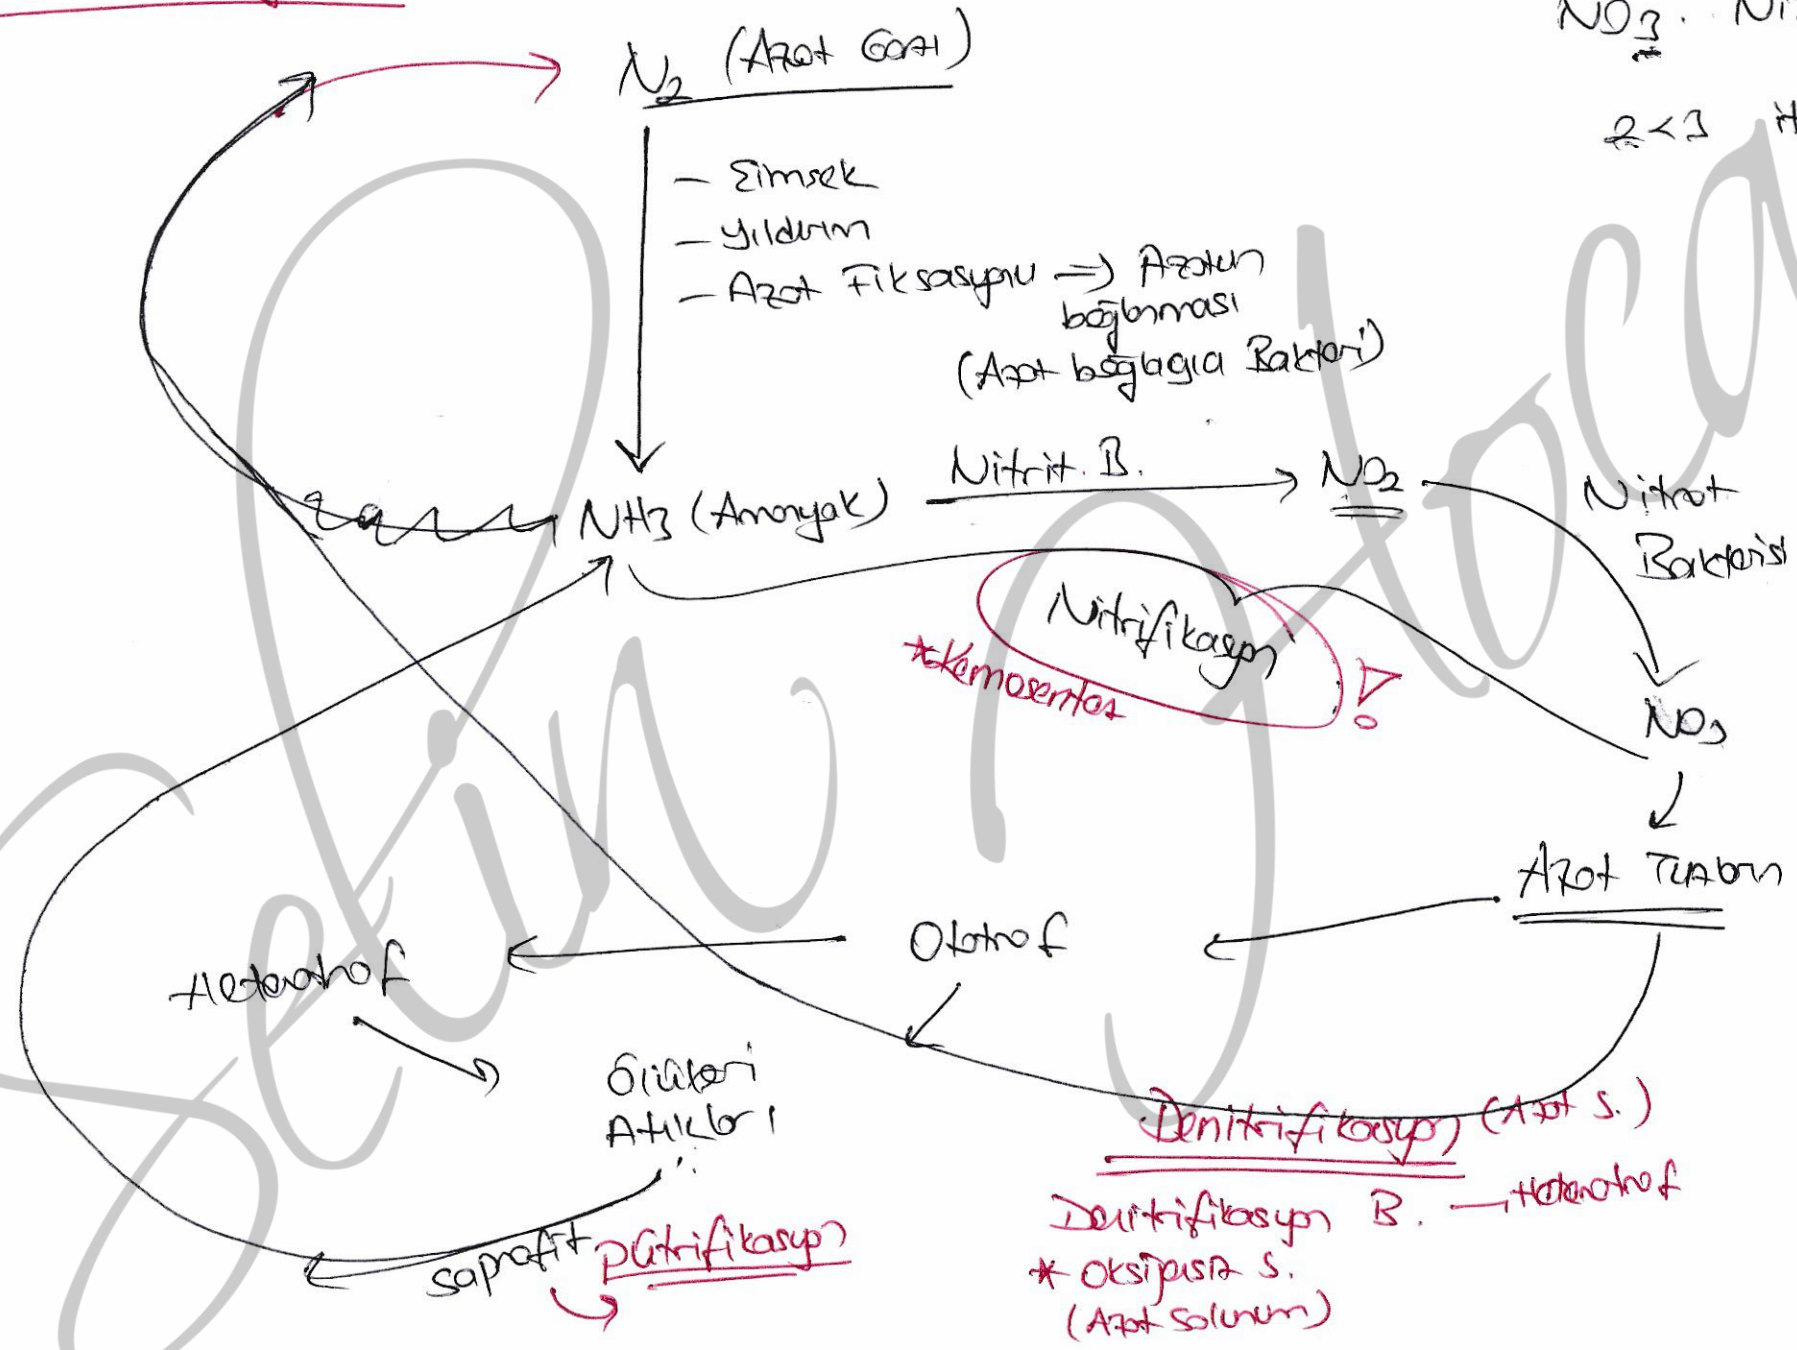 NO3. Ni
2<3
N2 (Azot Gazı)
- Şimşek
- Yıldırım
- Azot Fiksasyonu => Azotun
bağlanması
(Azot bağlayıcı Bakteri)
NH3 (Amonyak)
Nitrit. B.
NO2
Nitrat
Bakterisi
Nitrifikasyon
*Kemosentez
!
NO3
Azot Tutan
Ototrof
Heterotrof
Ölüleri
Atıkları
saprofit
pütrifikasyon
Denitrifikasyon (Azot S.)
Denitrifikasyon B. → Heterotrof
* Oksijensiz S.
(Azot Solunum)
Selin Hoca